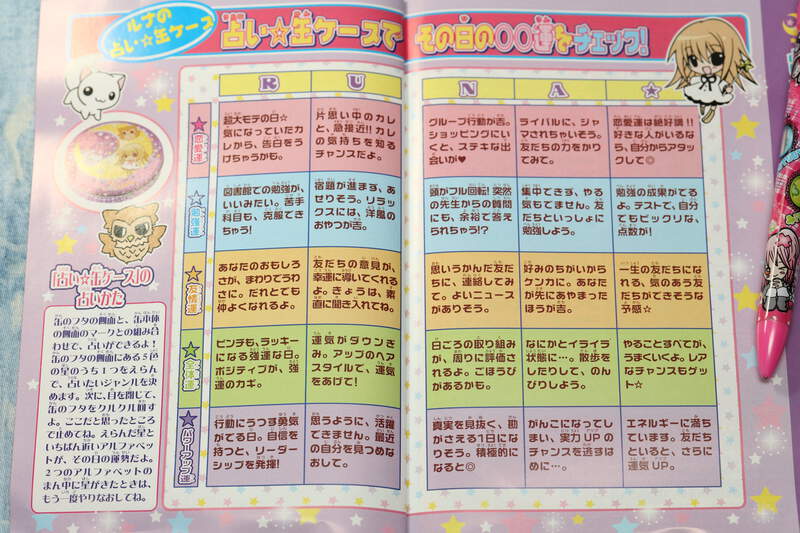 ルナの
占い☆缶ケース
占い☆缶ケースで その日の○○運をチェック!
R
U
N
A
★
恋愛運
超大モテの日☆
気になっていたカ
レから、告白をう
けちゃうかも。
片思い中のカレ
と、急接近!!カレ
の気持ちを知る
チャンスだよ。
グループ行動が吉。
ショッピングにい
くと、ステキな出
会いが♥
ライバルに、ジャ
マされちゃいそう。
友だちの力をかり
てみて。
恋愛運は絶好調!!
好きな人がいるな
ら、自分からアタッ
クして◎
勉強運
図書館での勉強が、
いいみたい。苦手
科目も、克服でき
ちゃう!
宿題が進まず、あ
せりそう。リラッ
クスには、洋風の
おやつが吉。
頭がフル回転!突然
の先生からの質問
にも、余裕で答え
られちゃう!?
集中できず、やる
気もてません。友
だちといっしょに
勉強しよう。
勉強の成果がでる
よ。テストで、自分
でもビックリな、
点数が!
友情運
あなたのおもしろ
さが、まわりでうわ
さに。だれとでも
仲よくなれるよ。
友だちの意見が、
幸運に導いてくれる
よ。きょうは、素
直に聞き入れてね。
思いうかんだ友だ
ちに、連絡してみ
て。よいニュース
がありそう。
好みのちがいから
ケンカに。あなた
が先にあやまった
ほうが吉。
一生の友だちにな
れる、気のあう友
だちができそうな
予感☆
全体運
ピンチも、ラッキー
になる強運な日。
ポジティブが、強
運のカギ。
運気がダウンぎ
み。アップのヘア
スタイルで、運気
をあげて!
日ごろの取り組み
が、周りに評価さ
れるよ。ごほうび
があるかも。
なにかとイライラ
状態に…。散歩を
したりして、のん
びりしよう。
やることすべてが、
うまくいくよ。レア
なチャンスもゲッ
ト☆
パワーアップ運
行動にうつす勇気
がでる日。自信を
持つと、リーダー
シップを発揮!
思うように、活躍
できません。最近
の自分を見つめな
おして。
真実を見抜く、勘
がさえる1日にな
りそう。積極的に
なると◎
がんこになってし
まい、実力UPの
チャンスを逃すは
めに…。
エネルギーに満ち
ています。友だち
といると、さらに
運気UP。
「占い☆缶ケース」の
占いかた
缶のフタの側面と、缶本体
の側面のマークとの組み合
わせで、占いができるよ!
缶のフタの側面にある5色
の星のうち1つをえらん
で、占いたいジャンルを決
めます。次に、目を閉じて、
缶のフタをクルクル回す
よ。ここだと思ったところ
で止めてね。えらんだ星と
いちばん近いアルファベッ
トが、その日の運勢だよ。
2つのアルファベットの
まん中に星がきたときは、
もう一度やりなおしてね。